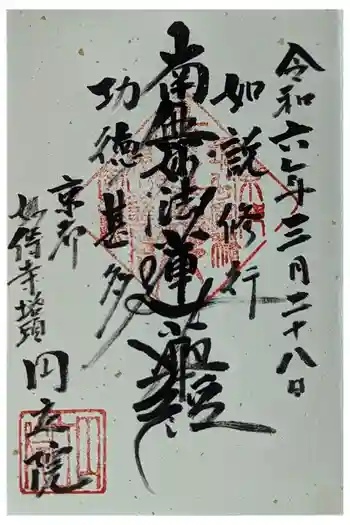 令和六年三月二十八日
如説修行
南無妙法蓮華経
功徳甚多
京都
妙傳寺塔頭
円立院